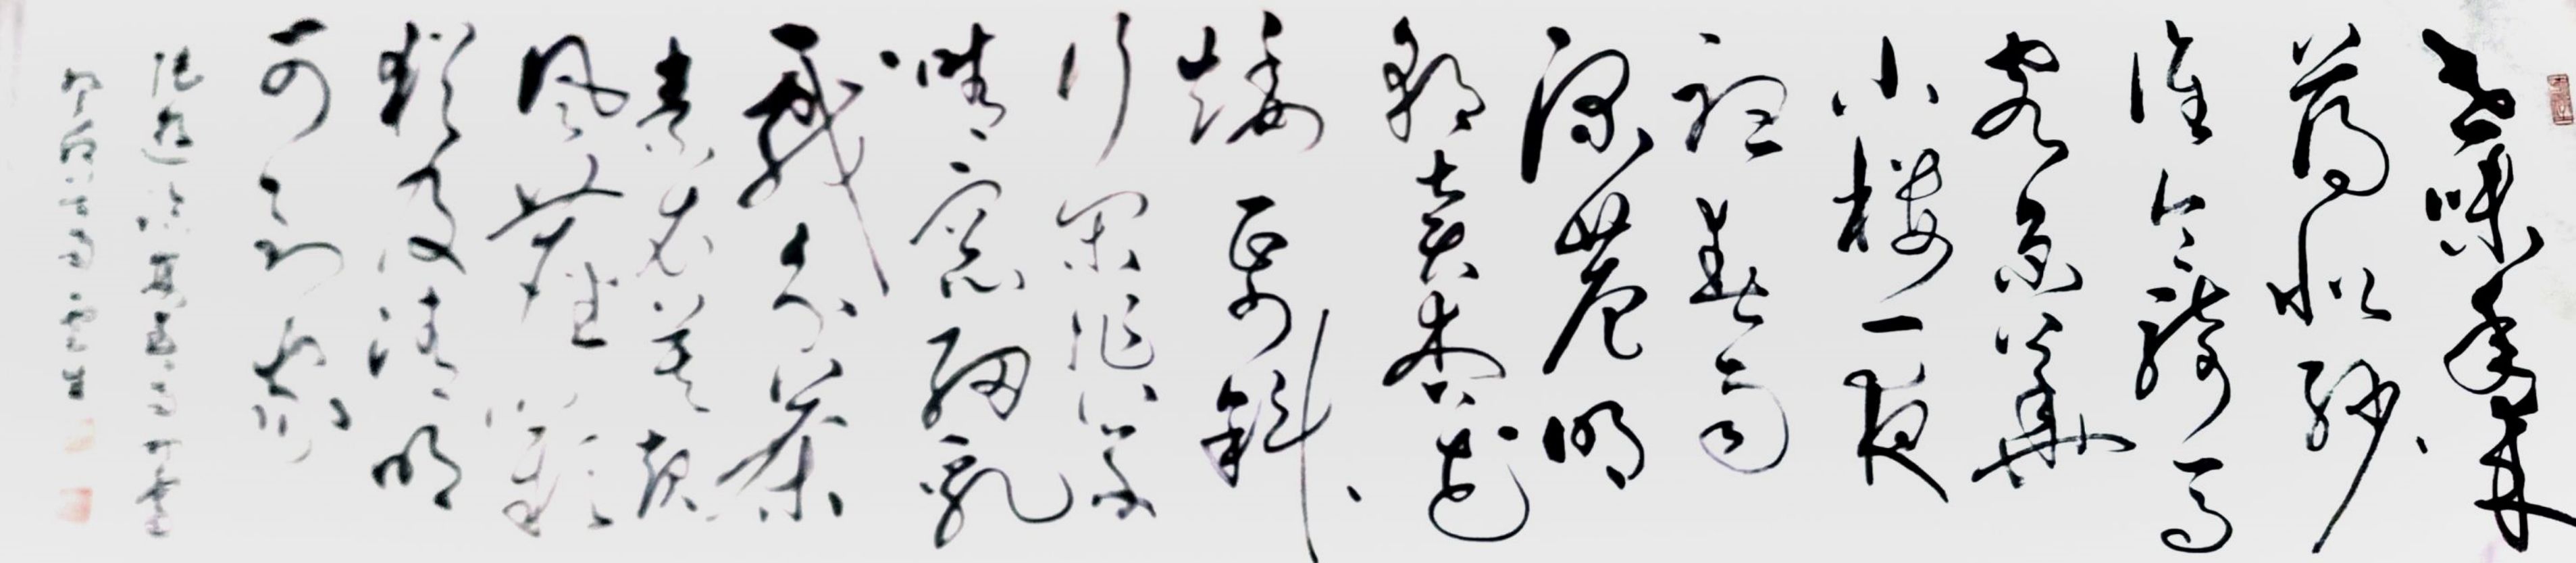 世味年来
薄似纱
谁令骑马
客京华
小楼一夜
听春雨
深巷明
朝卖杏花
矮纸斜
行闲作草
晴窗细乳
戏分茶
素衣莫起
风尘叹
犹及清明
可到家
陆游临安春雨初霁